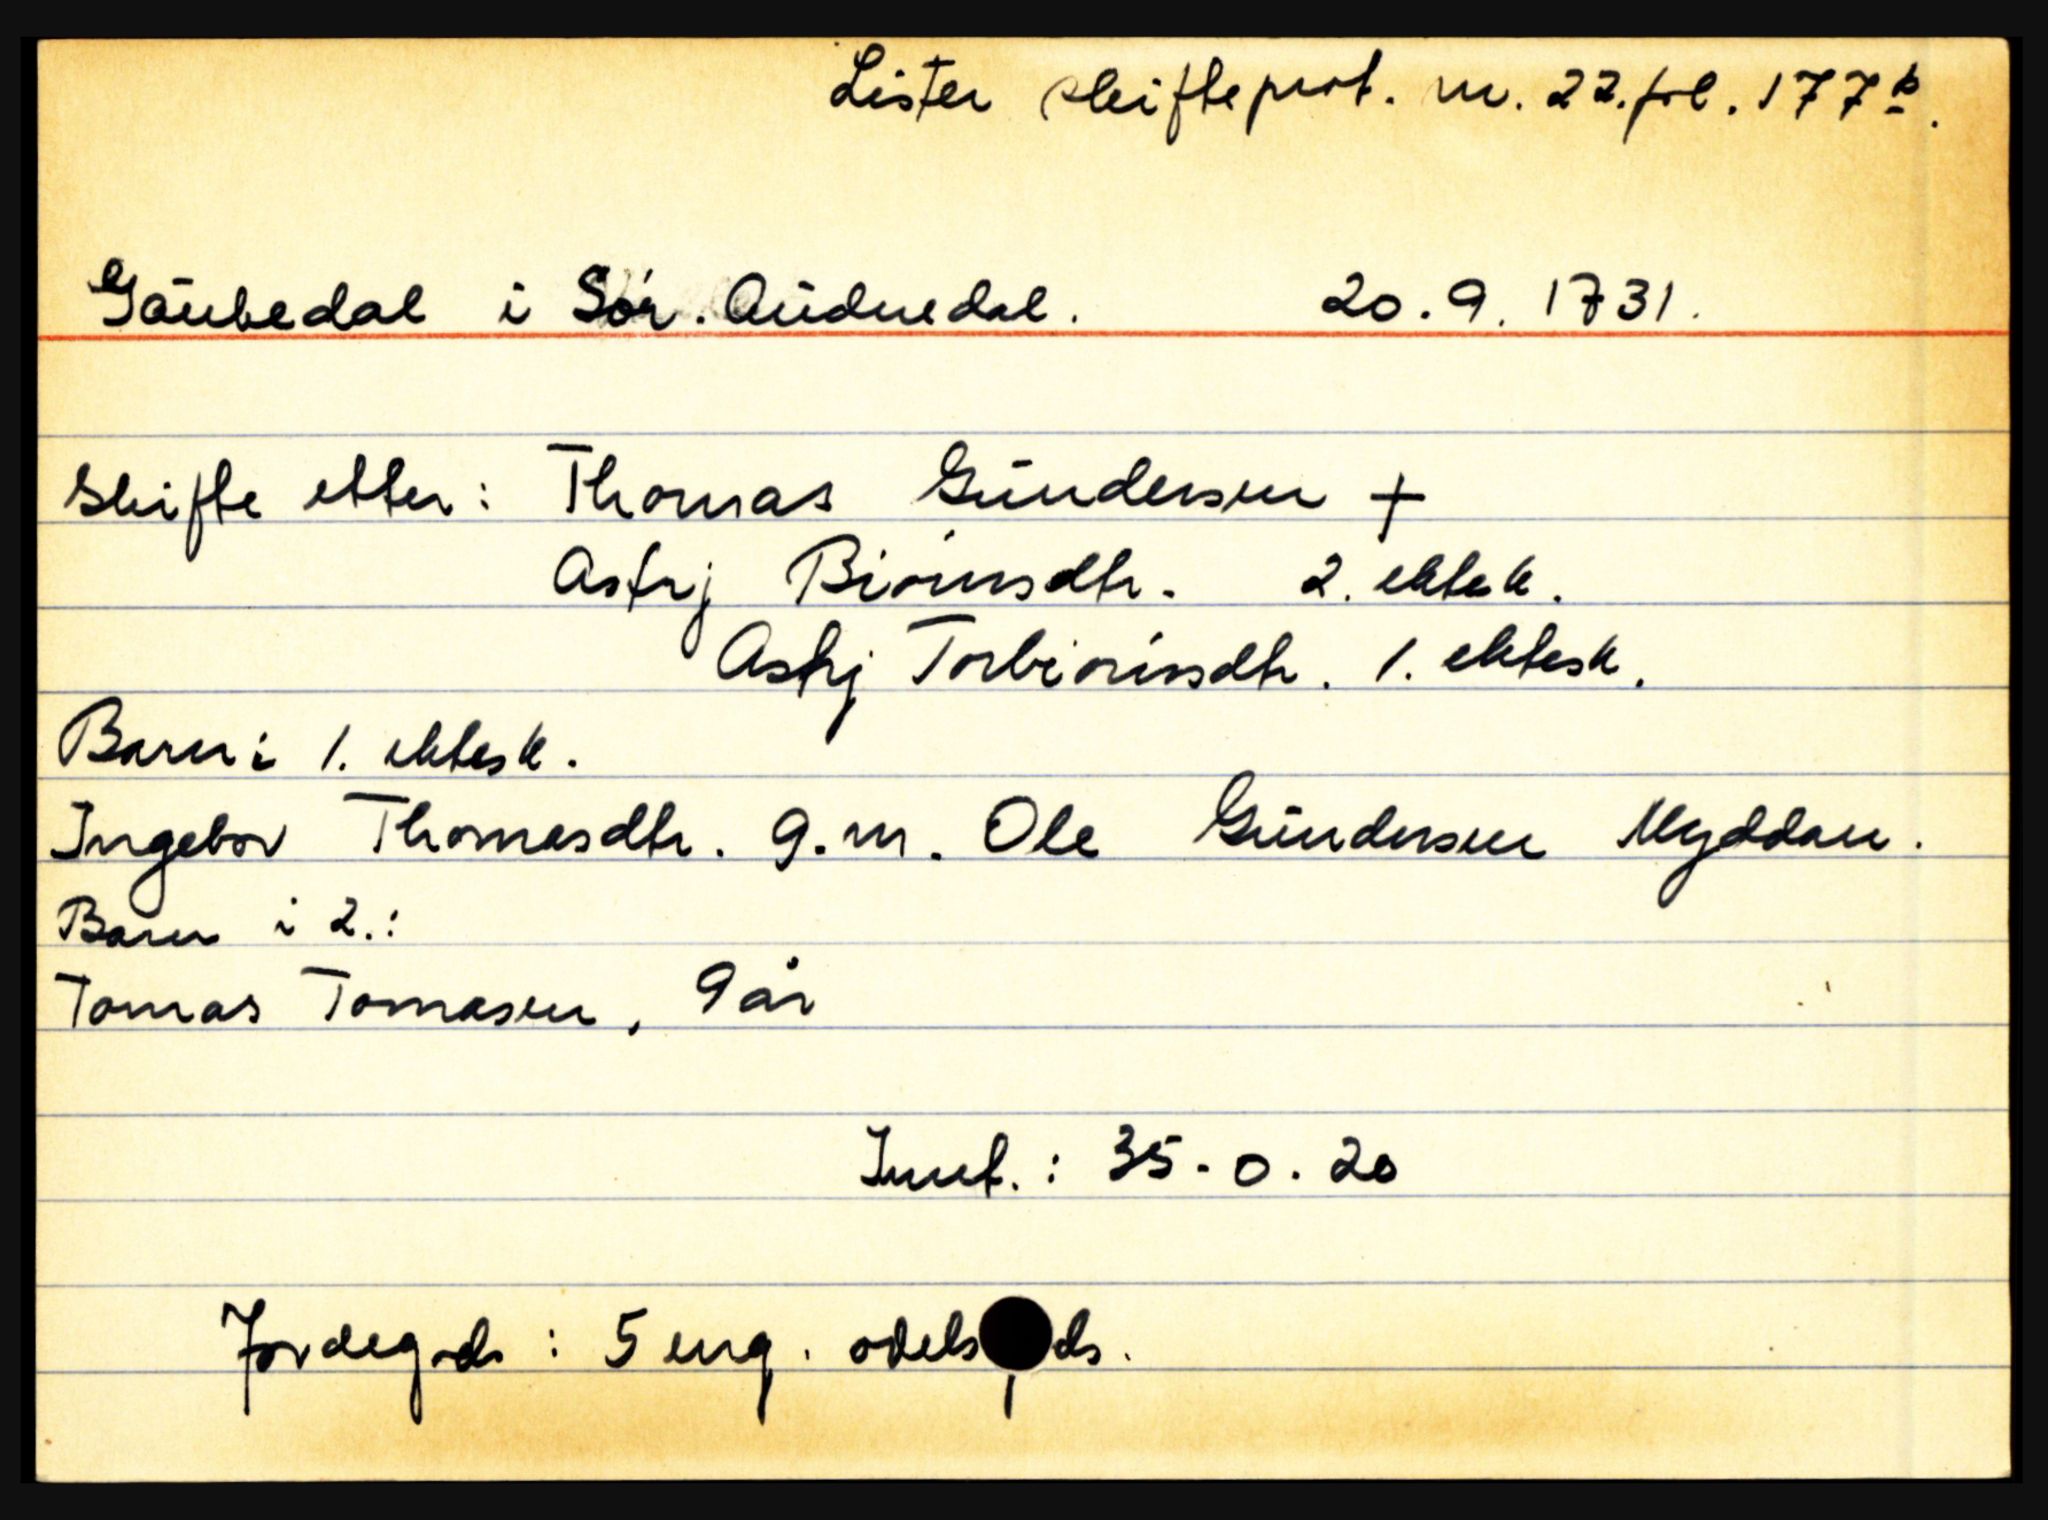 Lister skifteprot. nr. 22. fol. 177 b.
Gaubedal i Sør. Audnedal. 20.9.1731.
Skifte etter: Thomas Gundersen +
Astrj Biørnsdtr. 2. ektesk.
Astrj Torbiørnsdtr. 1. ektesk.
Barn i 1. ektesk.
Ingebor Thomasdtr. g.m. Ole Gundersen Myddan.
Barn i 2.:
Tomas Tomasen, 9 år
Innt.: 35-0.20
Jordegods: 5 eng. odels ds.